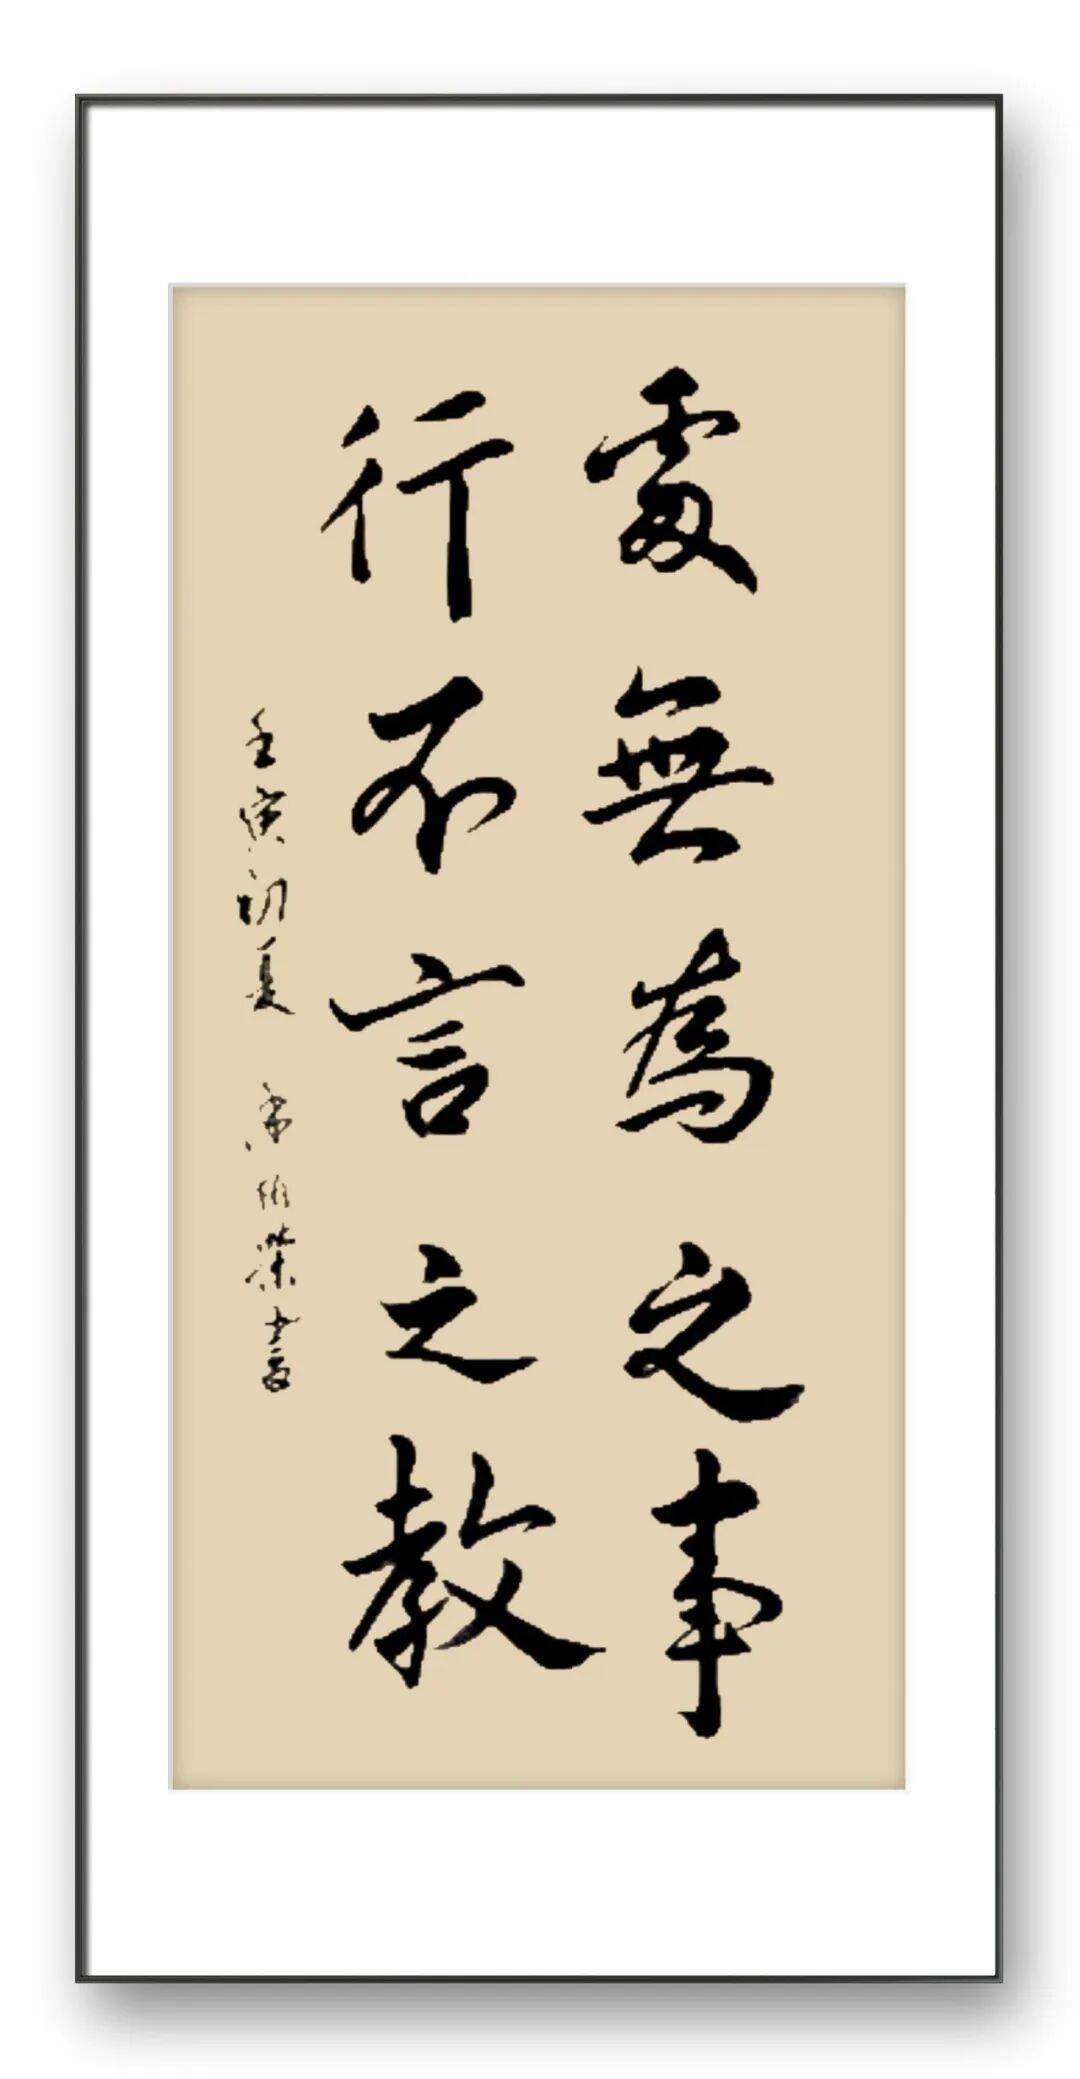 處無為之事
行不言之教
壬寅初夏 書